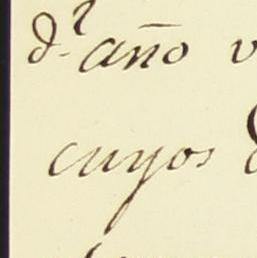 d.^l año v
cuyos